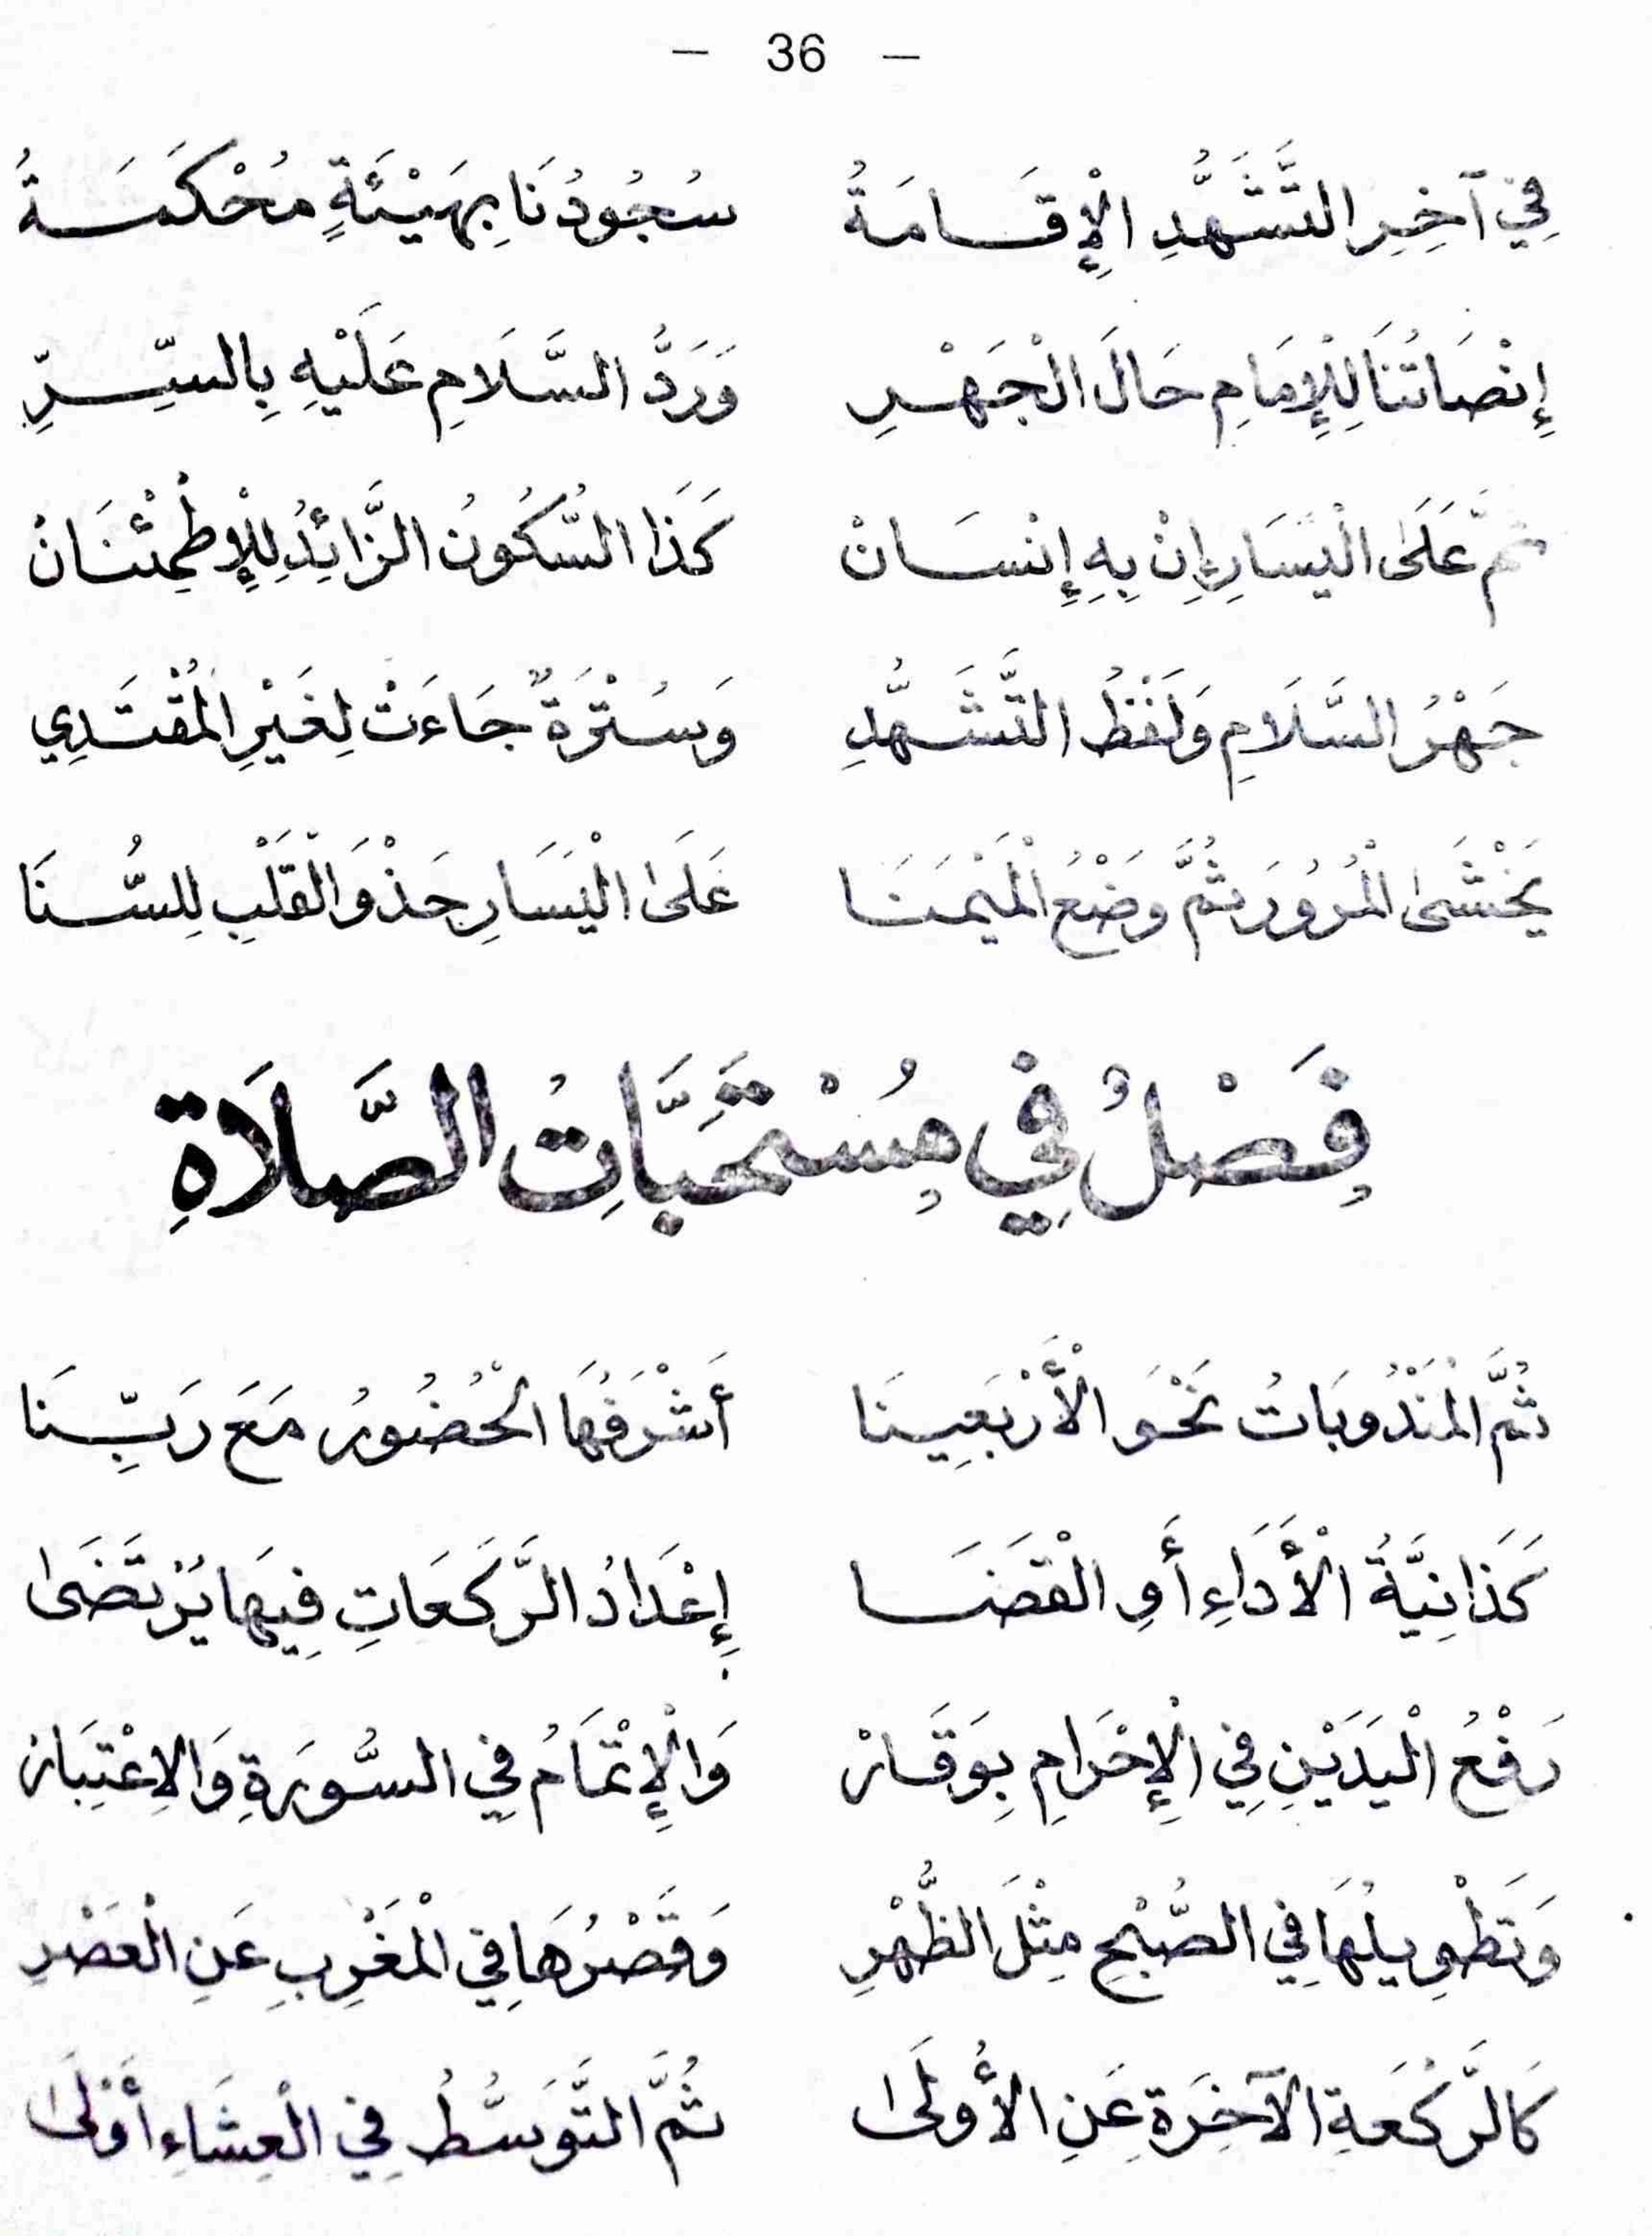 – 36 –
فِي آخِرِ التَّشَهُّدِ الْإِقَامَةُ سُجُودُنَا بِهَيْئَةٍ مُحْكَمَةُ
إِنْصَاتُنَا لِلْإِمَامِ حَالَ الْجَهْرِ وَرَدُّ السَّلَامِ عَلَيْهِ بِالسِّرِّ
ثُمَّ عَلَى الْيَسَارِ إِنْ بِهِ إِنْسَانْ كَذَا السُّكُونُ الزَّائِدُ لِلْإِطْمِئْنَانْ
جَهْرُ السَّلَامِ وَلَفْظُ التَّشَهُّدِ وَسُتْرَةٌ جَاءَتْ لِغَيْرِ الْمُقْتَدِي
يَخْشَى الْمُرُورَ ثُمَّ وَضْعُ الْمَيْمَنَا عَلَى الْيَسَارِ حَذْوَ الْقَلْبِ لِلسُّنَا
فَصْلٌ فِي مُسْتَحَبَّاتِ الصَّلَاةِ
ثُمَّ الْمَنْدُوبَاتُ نَحْوَ الْأَرْبَعِينَا أَشْرَفُهَا الْحُضُورُ مَعَ رَبِّنَا
كَذَا نِيَّةُ الْأَدَاءِ أَوِ الْقَضَا إِعْدَادُ الرَّكَعَاتِ فِيهَا يُرْتَضَى
رَفْعُ الْيَدَيْنِ فِي الْإِحْرَامِ بِوَقَارْ وَالْإِتْمَامُ فِي السُّورَةِ وَالِاعْتِبَارْ
وَتَطْوِيلُهَا فِي الصُّبْحِ مِثْلَ الظُّهْرِ وَقَصْرُهَا فِي الْمَغْرِبِ عَنِ الْعَصْرِ
كَالرَّكْعَةِ الْآخِرَةِ عَنِ الْأُولَى ثُمَّ التَّوَسُّطُ فِي الْعِشَاءِ أَوْلَى